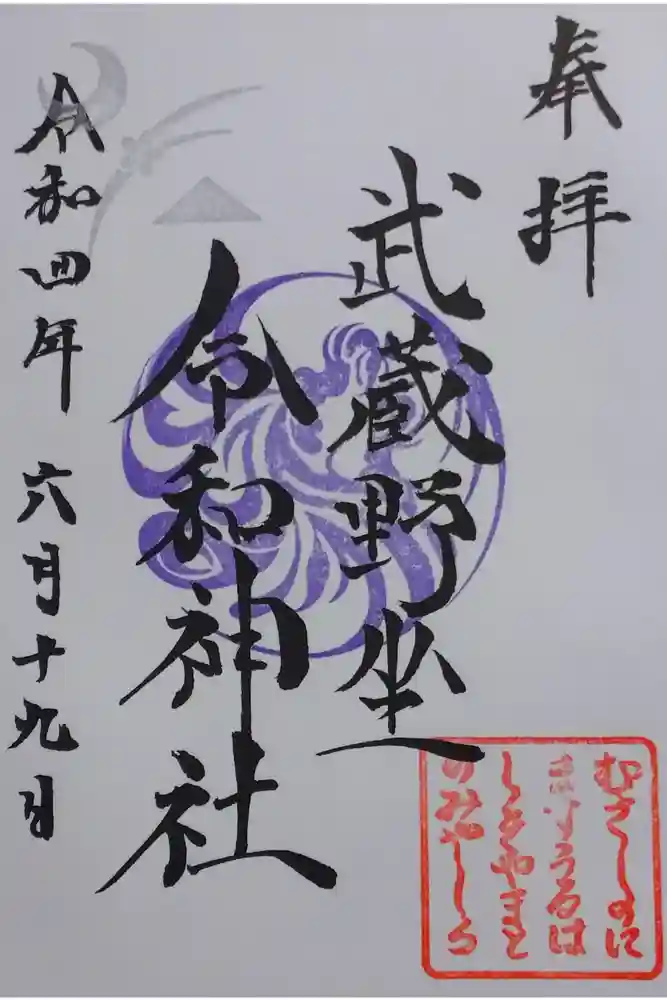 奉拝
武蔵野坐
令和神社
令和四年 六月十九日
むさしのに
ますうるは
しきやまと
のみやしろ